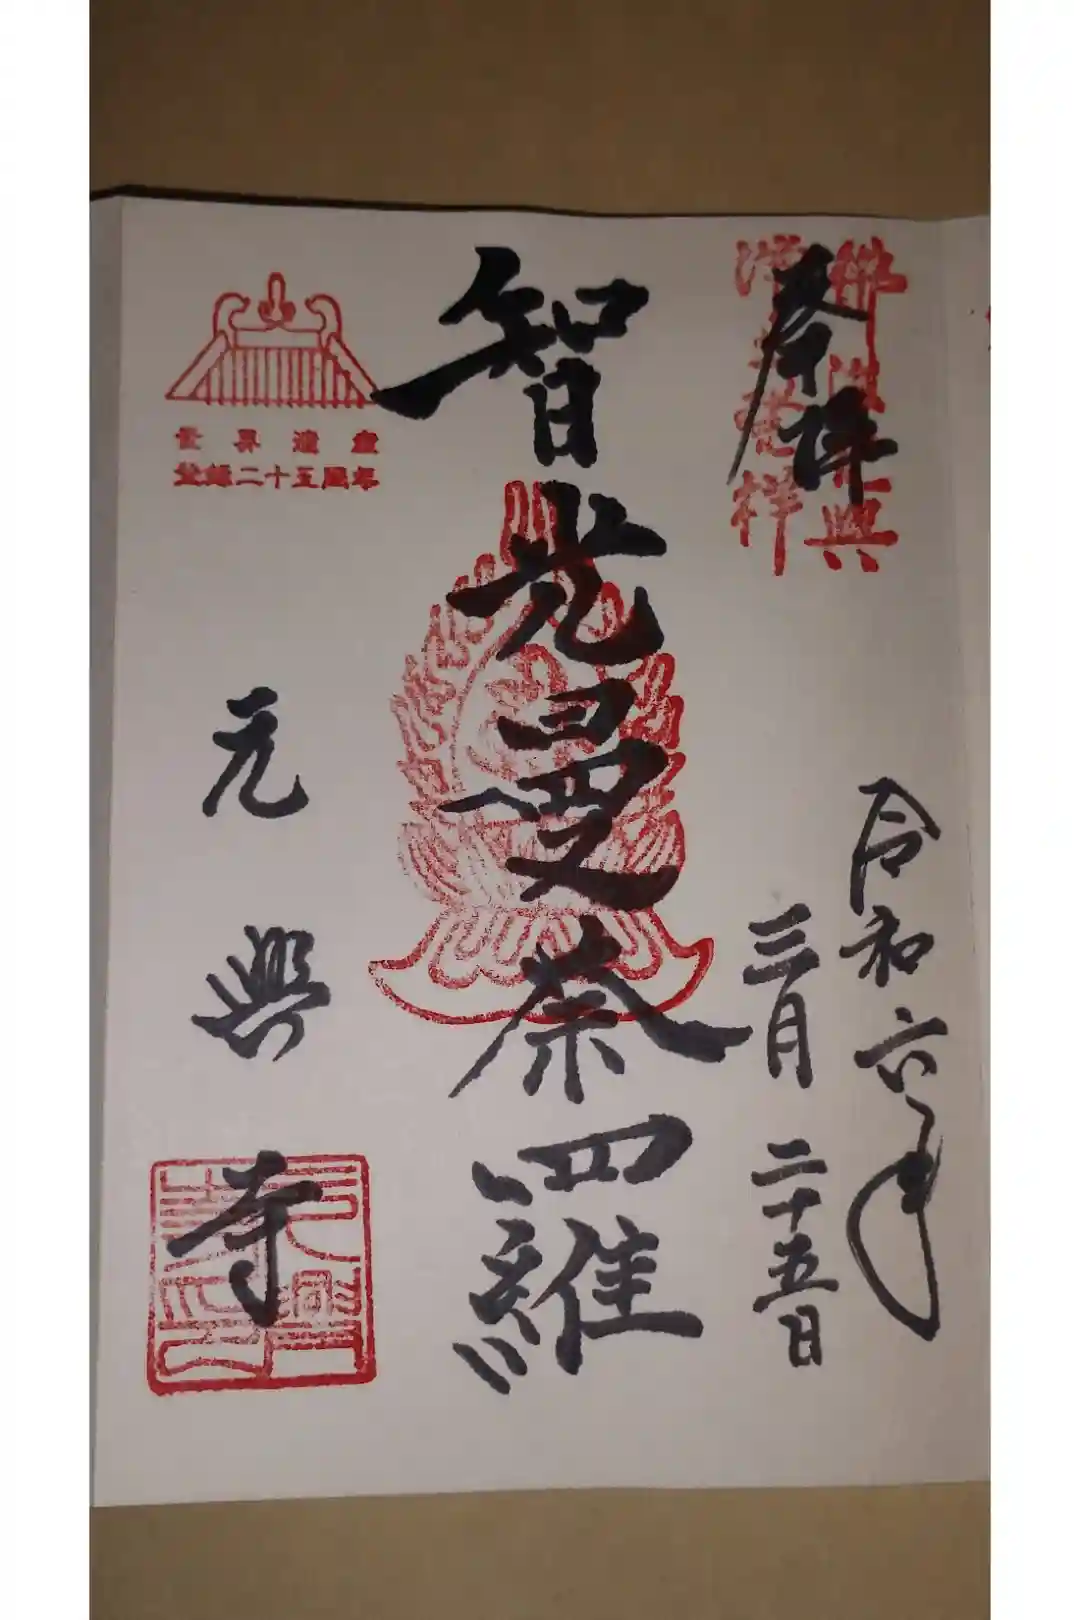 奉拝
佛法興
令和六年
三月二十五日
智光曼荼羅
世界遺産
登録二十五周年
元興寺